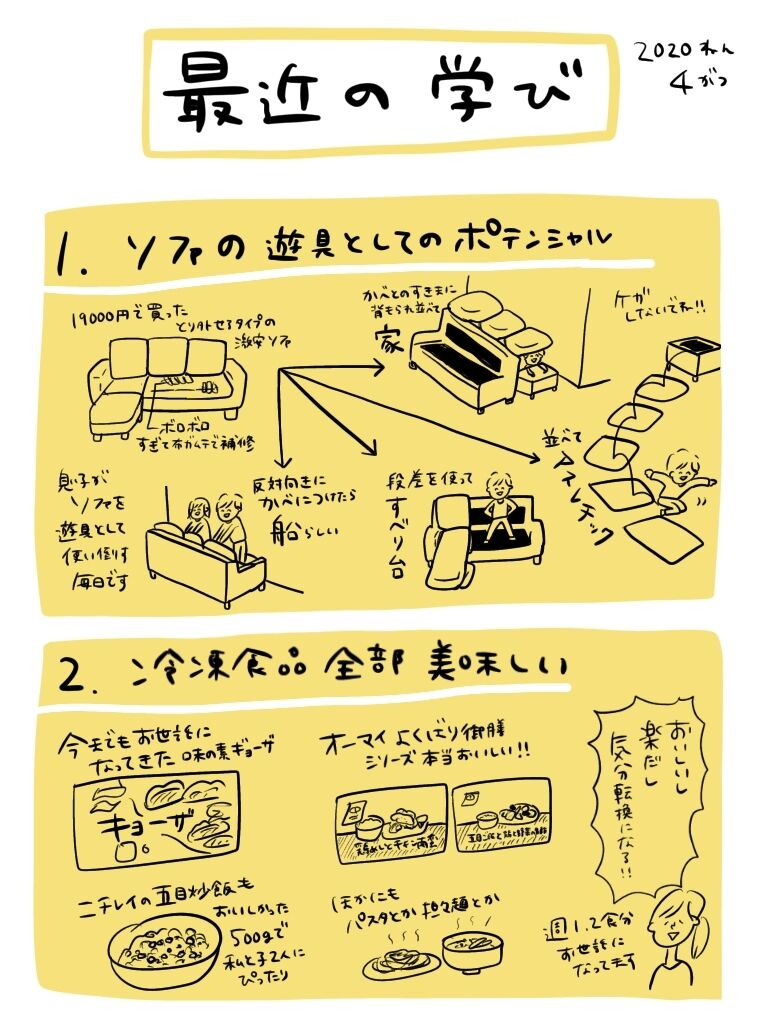 最近の学び
2020ねん
4がつ
1. ソファの遊具としてのポテンシャル
19000円で買った
とりはずせるタイプの
激安ソファ
ボロボロ
すぎて布ガムテで補修
かべとのすきまに
背もたれ並べて
家
ケガ
しないでね!!
息子が
ソファを
遊具として
使い倒す
毎日です
反対向きに
かべにつけたら
船らしい
段差を使って
すべり台
並べて
アスレチック
2. 冷凍食品 全部 美味しい
今までもお世話に
なってきた 味の素ギョーザ
ギョーザ
オーマイ よくばり御膳
シリーズ 本当おいしい!!
鶏めしとチキン南蛮
ニチレイの五目炒飯も
おいしかった
500gで
私と子2人に
ぴったり
ほかにも
パスタとか 担々麺とか
おいしいし
楽だし
気分転換になる!!
週1.2食分
お世話に
なってます